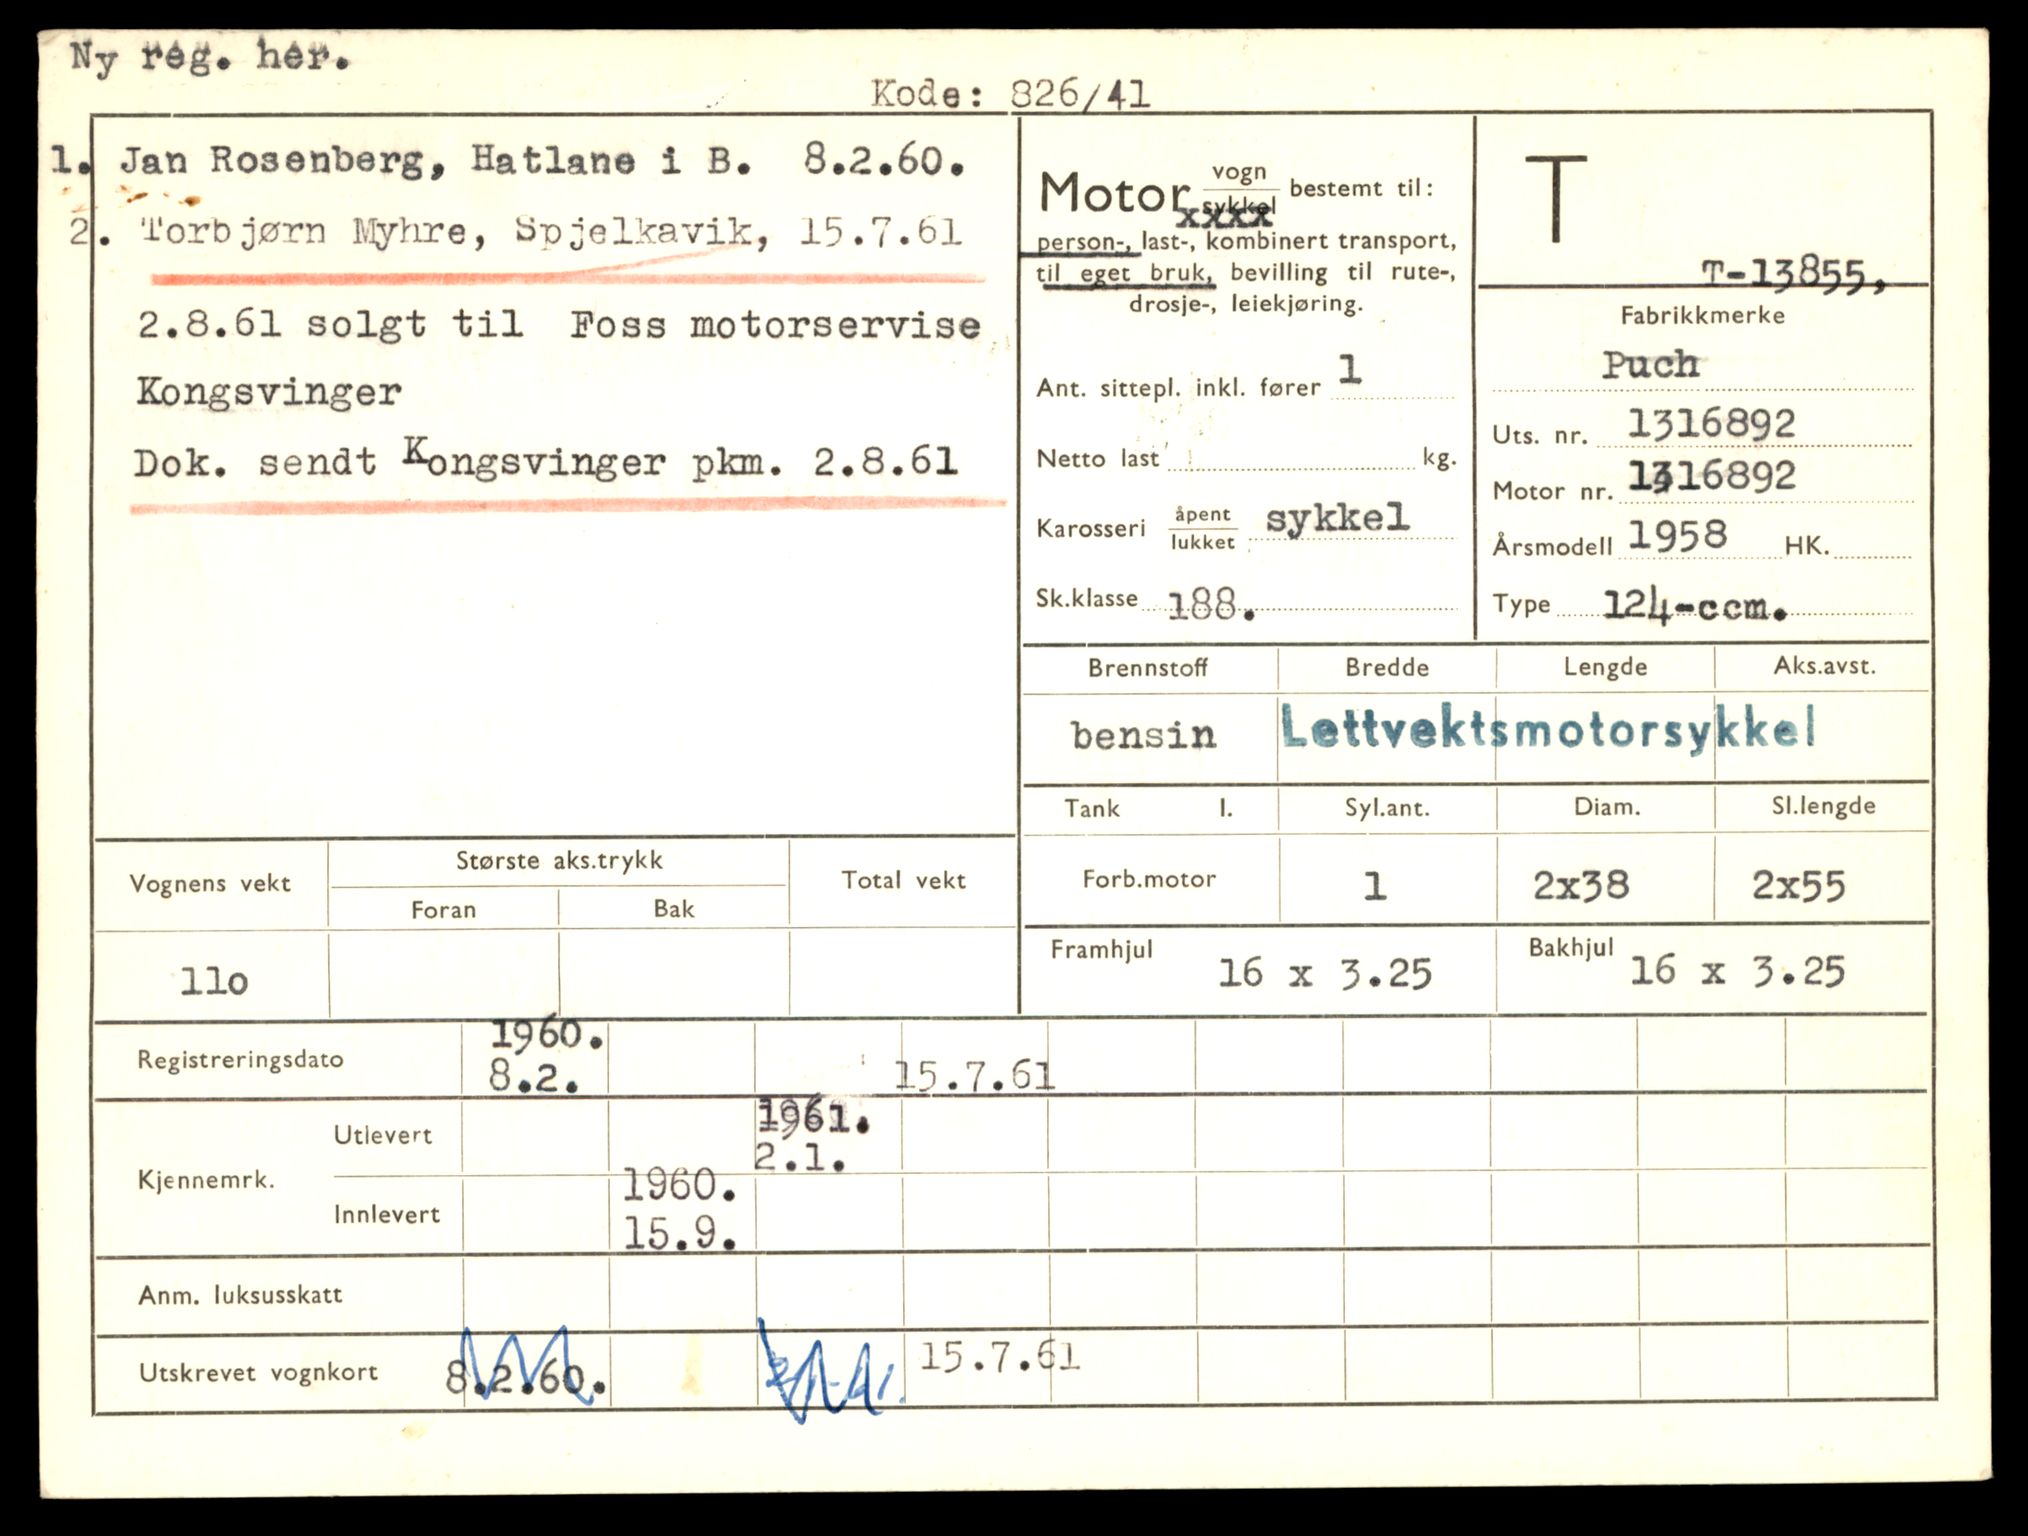 Ny reg. her.
Kode: 826/41
1. Jan Rosenberg, Hatlane i B. 8.2.60.
2. Torbjørn Myhre, Spjelkavik, 15.7.61
2.8.61 solgt til Foss motorservise
Kongsvinger
Dok. sendt Kongsvinger pkm. 2.8.61
Motor vogn sykkel bestemt til:
xxxx
person-, last-, kombinert transport,
til eget bruk, bevilling til rute-,
drosje-, leiekjøring.
Ant. sittepl. inkl. fører 1
Netto last kg.
Karosseri åpent lukket sykkel
Sk.klasse 188.
T
T-13855,
Fabrikkmerke
Puch
Uts. nr. 1316892
Motor nr. 1316892
Årsmodell 1958 HK.
Type 124-ccm.
Brennstoff Bredde Lengde Aks.avst.
bensin Lettvektsmotorsykkel
Tank l. Syl.ant. Diam. Sl.lengde
Forb.motor 1 2x38 2x55
Framhjul 16 x 3.25 Bakhjul 16 x 3.25
Vognens vekt Største aks.trykk Total vekt
Foran Bak
11o
Registreringsdato 1960. 8.2. 15.7.61
Kjennemrk.
Utlevert 1961. 2.1.
Innlevert 1960. 15.9.
Anm. luksusskatt
Utskrevet vognkort 8.2.60. 15.7.61